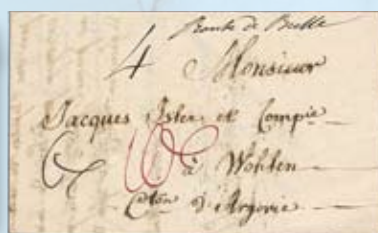 Route de Basle
4
Monsieur
Jacques Isler et Compie
à Wohlen
Cton d'Argovie